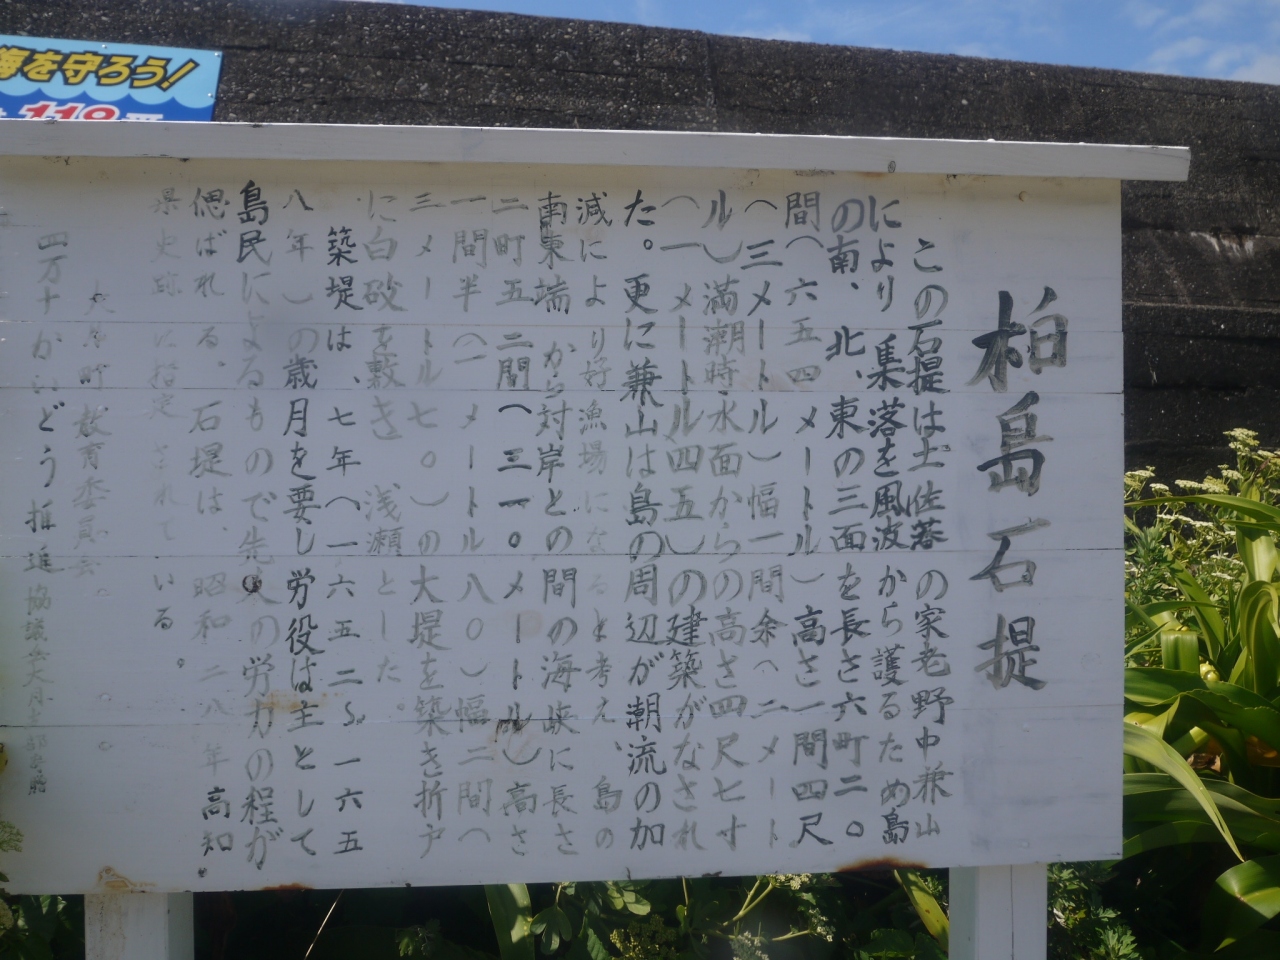 海を守ろう!
118
柏島石提
この石提は土佐藩の家老野中兼山
により集落を風波から護るため島
の南、北、東の三面を長さ六町二〇
間(六五四メートル)高さ一間四尺
(三メートル)幅一間余(二メート
ル)満潮時水面からの高さ四尺七寸
(一メートル四五)の建築がなされ
た。更に兼山は島の周辺が潮流の加
減により好漁場になると考え、島の
南東端から対岸との間の海峡に長さ
二町五二間(三一〇メートル)高さ
一間半(一メートル八〇)幅二間(
三メートル七〇)の大堤を築き折戸
に白砂を敷き浅瀬とした。
築堤は、七年(一六五二～一六五
八年)の歳月を要し労役は主として
島民によるもので先人の労力の程が
偲ばれる、石堤は、昭和二八年高知
県史跡に指定されている。
大月町教育委員会
四万十かいどう推進協議会大月支部